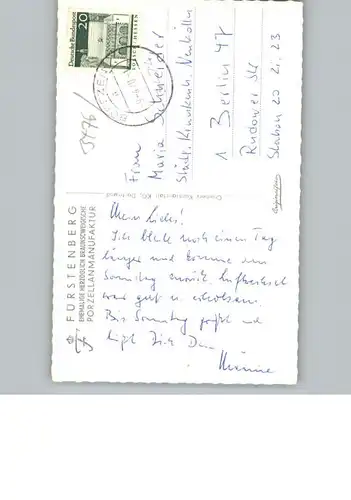 FÜRSTENBERG
EHEMALIGE HERZOGLICH BRAUNSCHWEIGISCHE
PORZELLANMANUFAKTUR
Mein Liebes!
Ich bleibe noch einen Tag
länger und komme am
Sonntag zurück.
war gut u. erholsam.
Bis Sonntag grüßt und
küßt Dich Dein
Männe
Deutsche Bundespost
20
Frau
Maria Schneider
Städt. Krankenh. Neukölln
1 Berlin 47
Rudower Str
Station 20 Zi. 23
3476